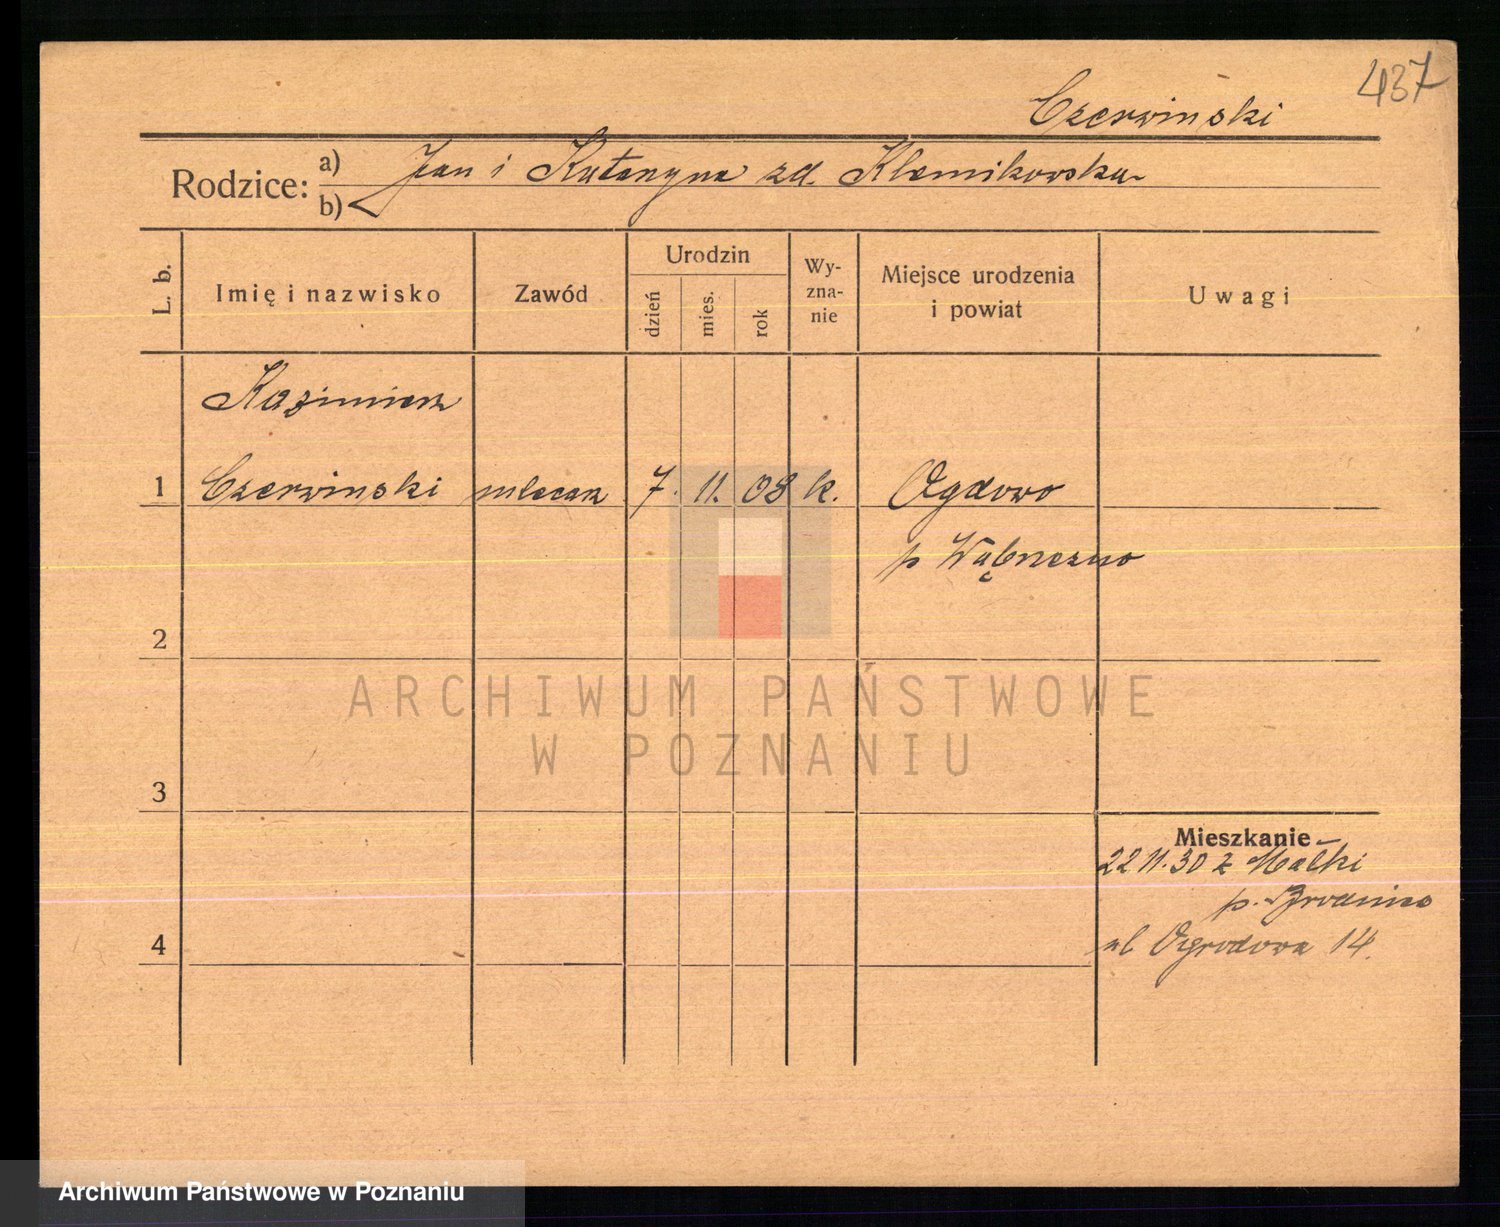 437
Czerwiński
Rodzice: a) Jan i Katarzyna zd. Klemikowska
b)
L. b.
Imię i nazwisko
Zawód
Urodzin
dzień
mies.
rok
Wy-
zna-
nie
Miejsce urodzenia
i powiat
Uwagi
Kazimierz
1 Czerwinski mleczarz 7. 11. 08 k. Ogdowo
p Wąbrzezno
2
3
4
Mieszkanie
22 11. 30 z Małki
p. Brodnica
ul Ogrodowa 14.
ARCHIWUM PAŃSTWOWE
W POZNANIU
Archiwum Państwowe w Poznaniu